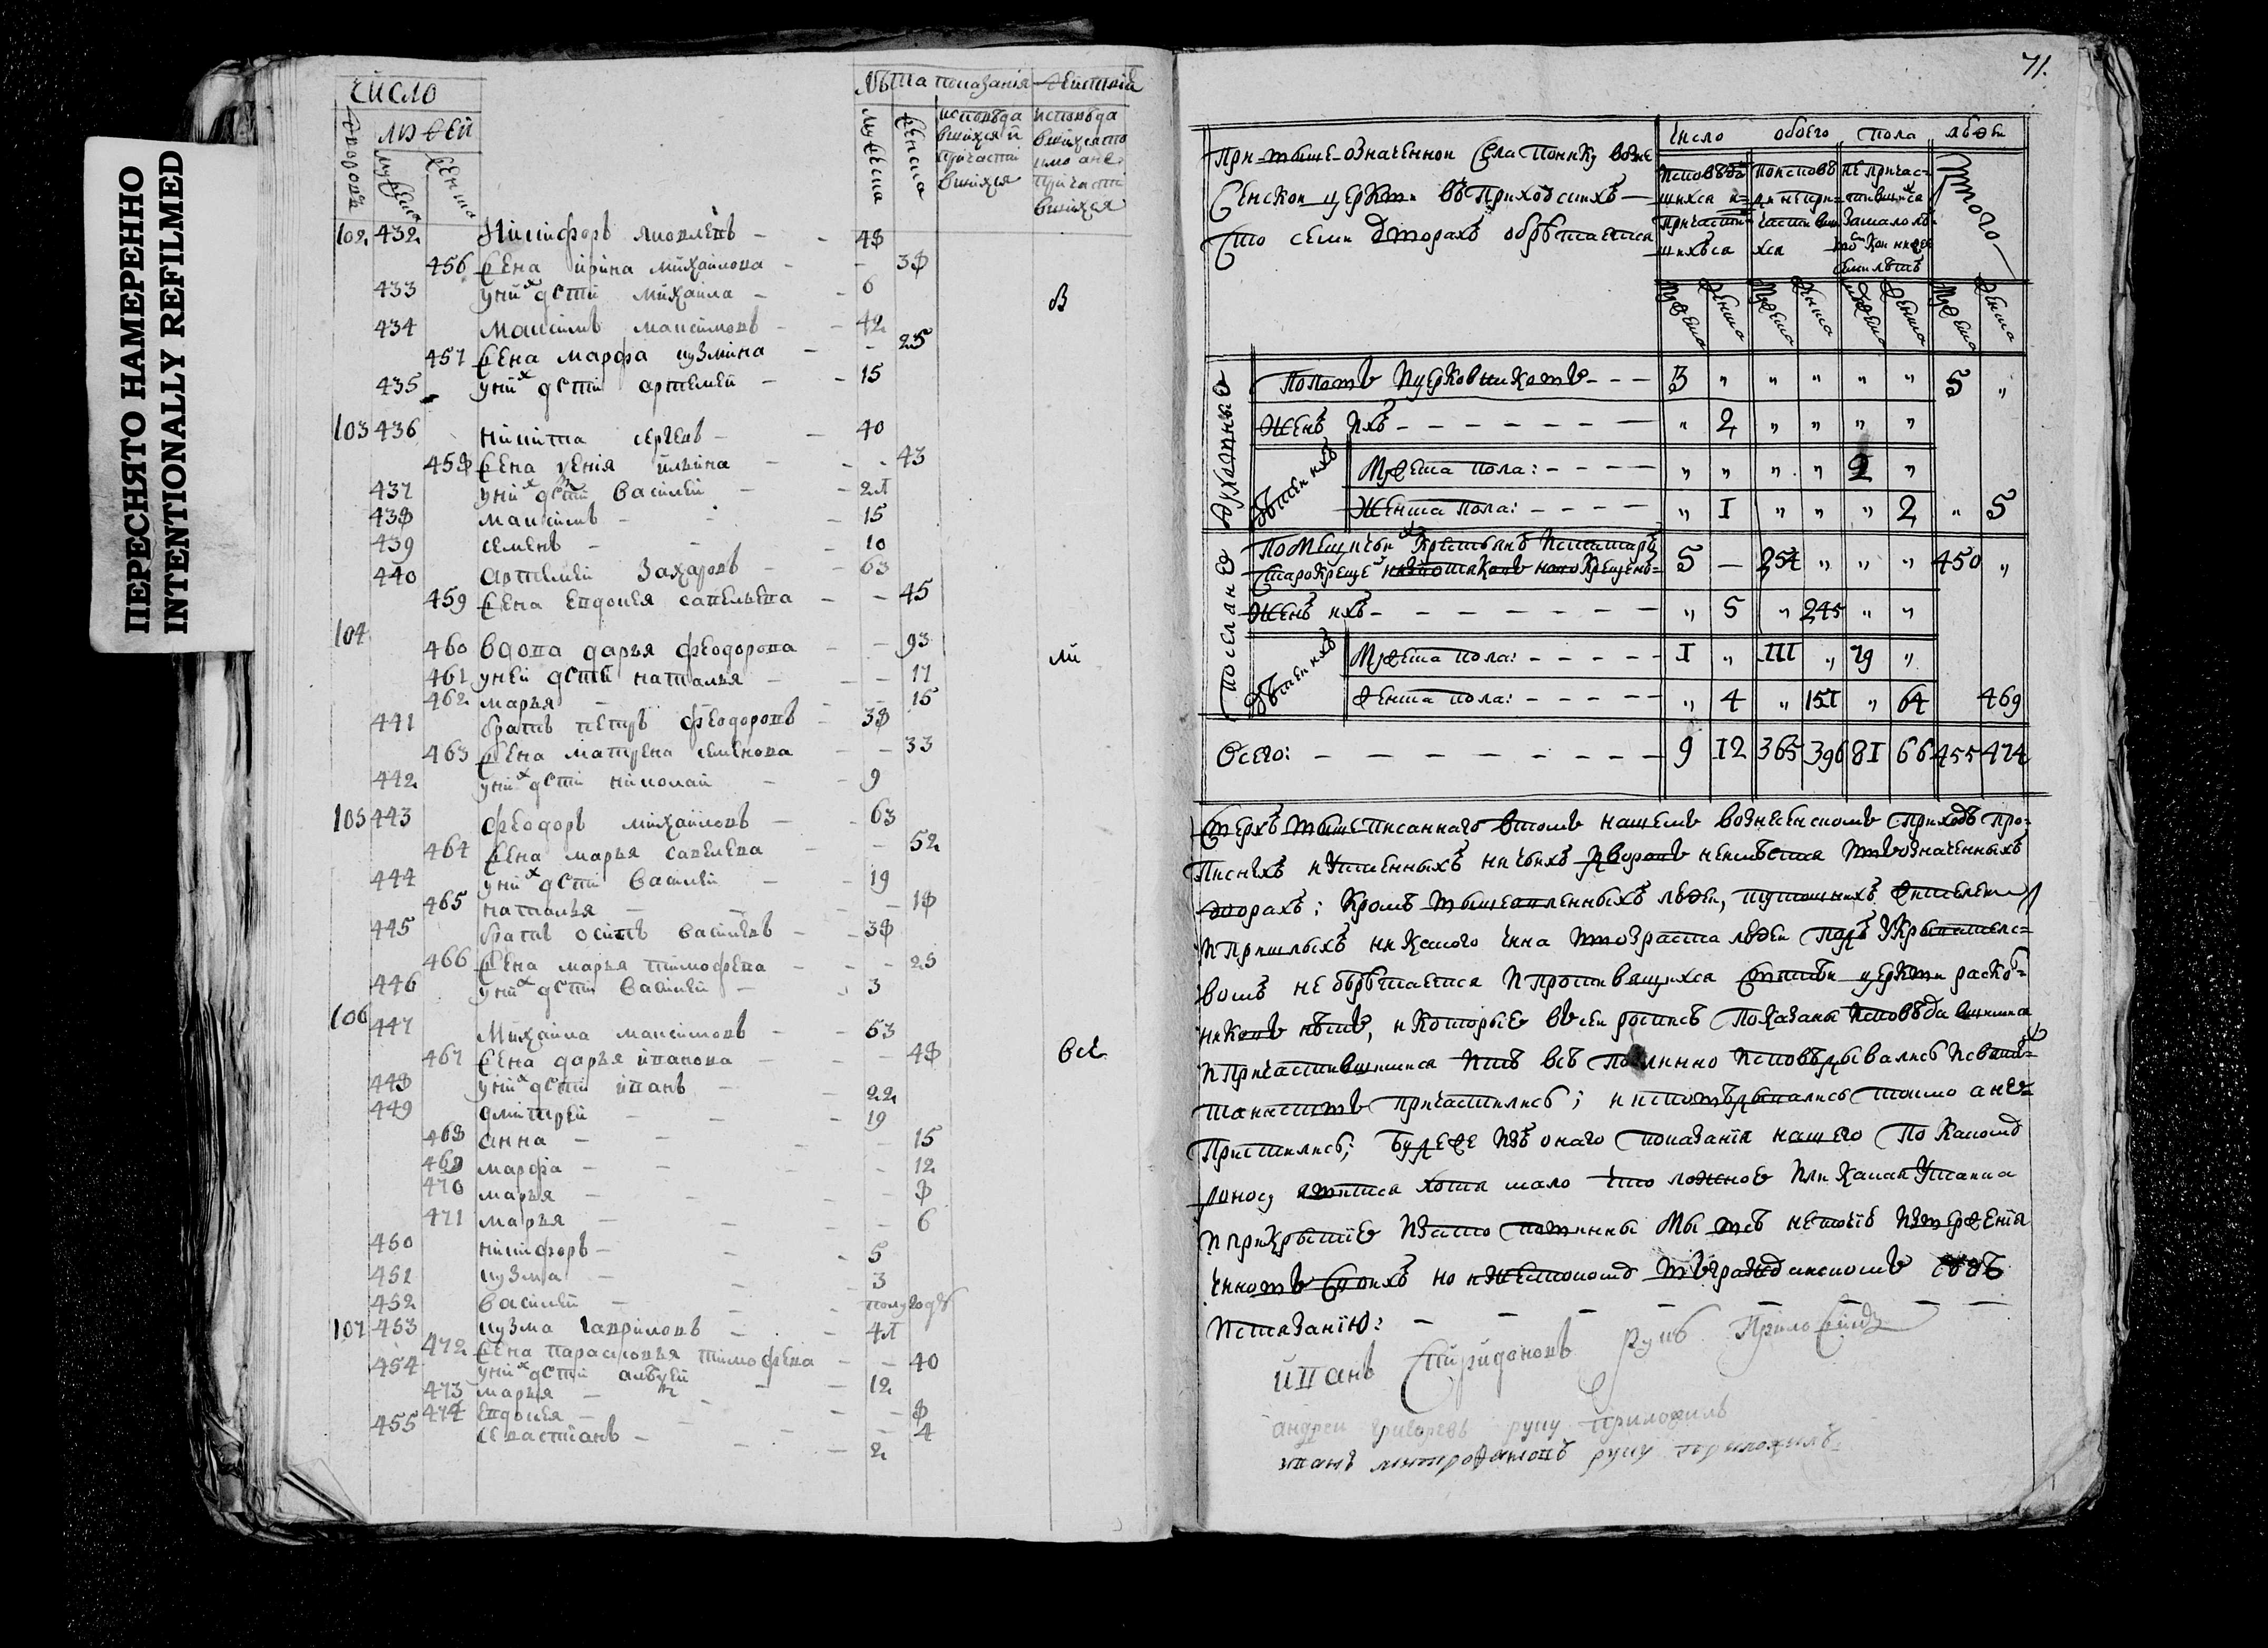 ПЕРЕСНЯТО НАМЕРЕННО
INTENTIONALLY REFILMED
число
людей
лѣта показанія
дворовъ
мужеска
женска
мужеска
женска
исповѣда
вшихся и
причасти
вшихся
исповѣда
вшихся то
лко а не
причасти
вшихся
102 432 Никифоръ Яковлевъ 48
456 жена ирина михаилова 38
433 у них дети михаила 6
434 Максимъ максимовъ 42
457 жена марфа кузмина 25
435 у них дети артемей 15
103 436 никита сергеевъ 40
458 жена ксения ильина 43
437 у них дети василей
438 максимъ 15
439 семенъ 10
440 артемей захаровъ 63
459 жена евдокея савельева 45
104
460 вдова дарья феодорова 93
461 у ней дети наталья 17
462 марья 15
441 братъ петръ феодоровъ 38
463 жена матрена семенова 33
442 у них дети николай 9
105 443 феодоръ михайловъ 63
464 жена марья савелева 52
444 у них дети василей 19
465 наталья 18
445 братъ осипъ василевъ 38
466 жена марья тимофеева 25
446 у них дети василей 3
106
447 Михайла максимовъ 53
467 жена дарья иванова 48
все
448 у них дети иванъ 22
449 дмитрей 19
468 анна 15
469 марфа 12
470 марья 8
471 марья 6
450 никифоръ 5
451 кузма 3
452 василей полугоду
107 453 кузма гавриловъ
472 жена парасковья тимофеева 40
454 у них дети алексей 12
473 марья 8
474 евдокея 4
455 севастианъ 2
71.
При выше означеннои села Поника возне
сенскои церкви въ приходскихъ
сто семи дворахъ обрѣтается
число обоего пола людеи
исповѣдав
шихся и
причастив
шихъся
Итого
мужеска женска мужеска женска мужеска женска мужеска женска
Духовныхъ
Поповъ и церковниковъ 3 „ „ „ „ „ 5 „
Женъ ихъ „ 2 „ „ „ „
Дѣтеи ихъ
Мужеска пола: „ „ „ „ 2 „
Женска пола: „ 1 „ „ „ 2 „ 5
Поселянъ
5 — 254 „ „ „ 450 „
Женъ ихъ „ 5 „ 245 „ „
Дѣтеи ихъ
Мужеска пола: 1 „ 111 „ 79 „
Женска пола: „ 4 „ 151 „ 64 469
Всего: 9 12 365 396 81 66 455 474
Сверхъ выше писаннаго в томъ нашемъ вознесенскомъ приходѣ про-
писныхъ и утаенныхъ ничьихъ дворовъ неимѣется и въ означенныхъ
дворахъ; кромѣ вышеявленныхъ людеи, тутошнихъ жителеи
и пришлыхъ никакого чина и возраста людеи подъ укрывателс-
вомъ не обрѣтается и противящихся святѣи церкви раско-
никовъ нѣтъ, и которые в сеи росписе показаны исповѣдавшимися
и причастившимися и тѣ всѣ подлинно исповѣдывались и святых
таинствъ причастились; и исповѣдывались токмо а не
причастились; буде же изъ онаго показанія нашего по какому
доносу явится хотя мало что ложное или какая утаика
и прикрытіе и за то повинны мы всѣ не токмо изверженія
чиновъ своихъ но и жестокому въ гражданскомъ судѣ
истязанію:
иванъ спиридоновъ руку приложилъ
андреи григоревъ руку приложилъ
иванъ митрофановъ руку приложилъ